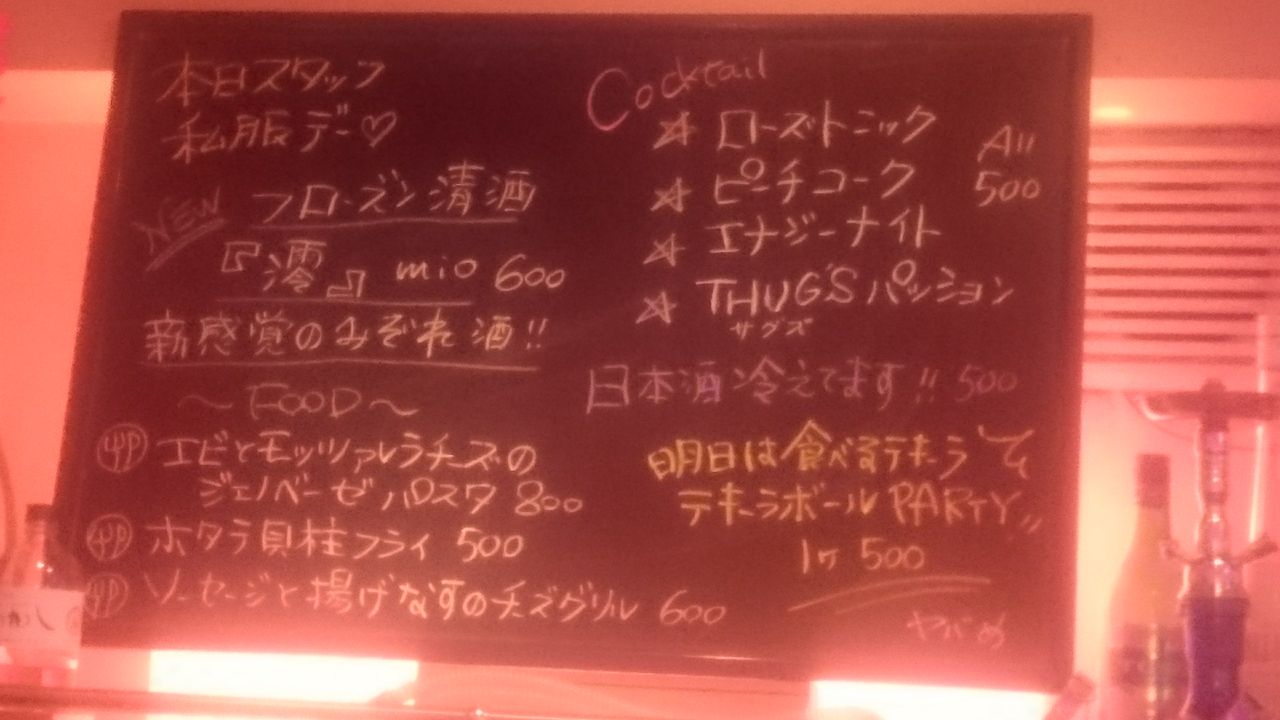 本日スタッフ
私服デー♡
NEW フローズン清酒
『澪』 mio 600
新感覚のみぞれ酒!!
～FOOD～
エビとモッツァレラチーズの
ジェノベーゼパスタ 800
ホタテ貝柱フライ 500
ソーセージと揚げなすのチーズグリル 600
Cocktail
☆ ローズトニック
All
☆ ピーチコーク
500
☆ エナジーナイト
☆ THUG'Sパッション
サグズ
日本酒冷えてます!! 500
明日は食べるテキーラ
テキーラボールPARTY!!
1ヶ 500
ヤバめ